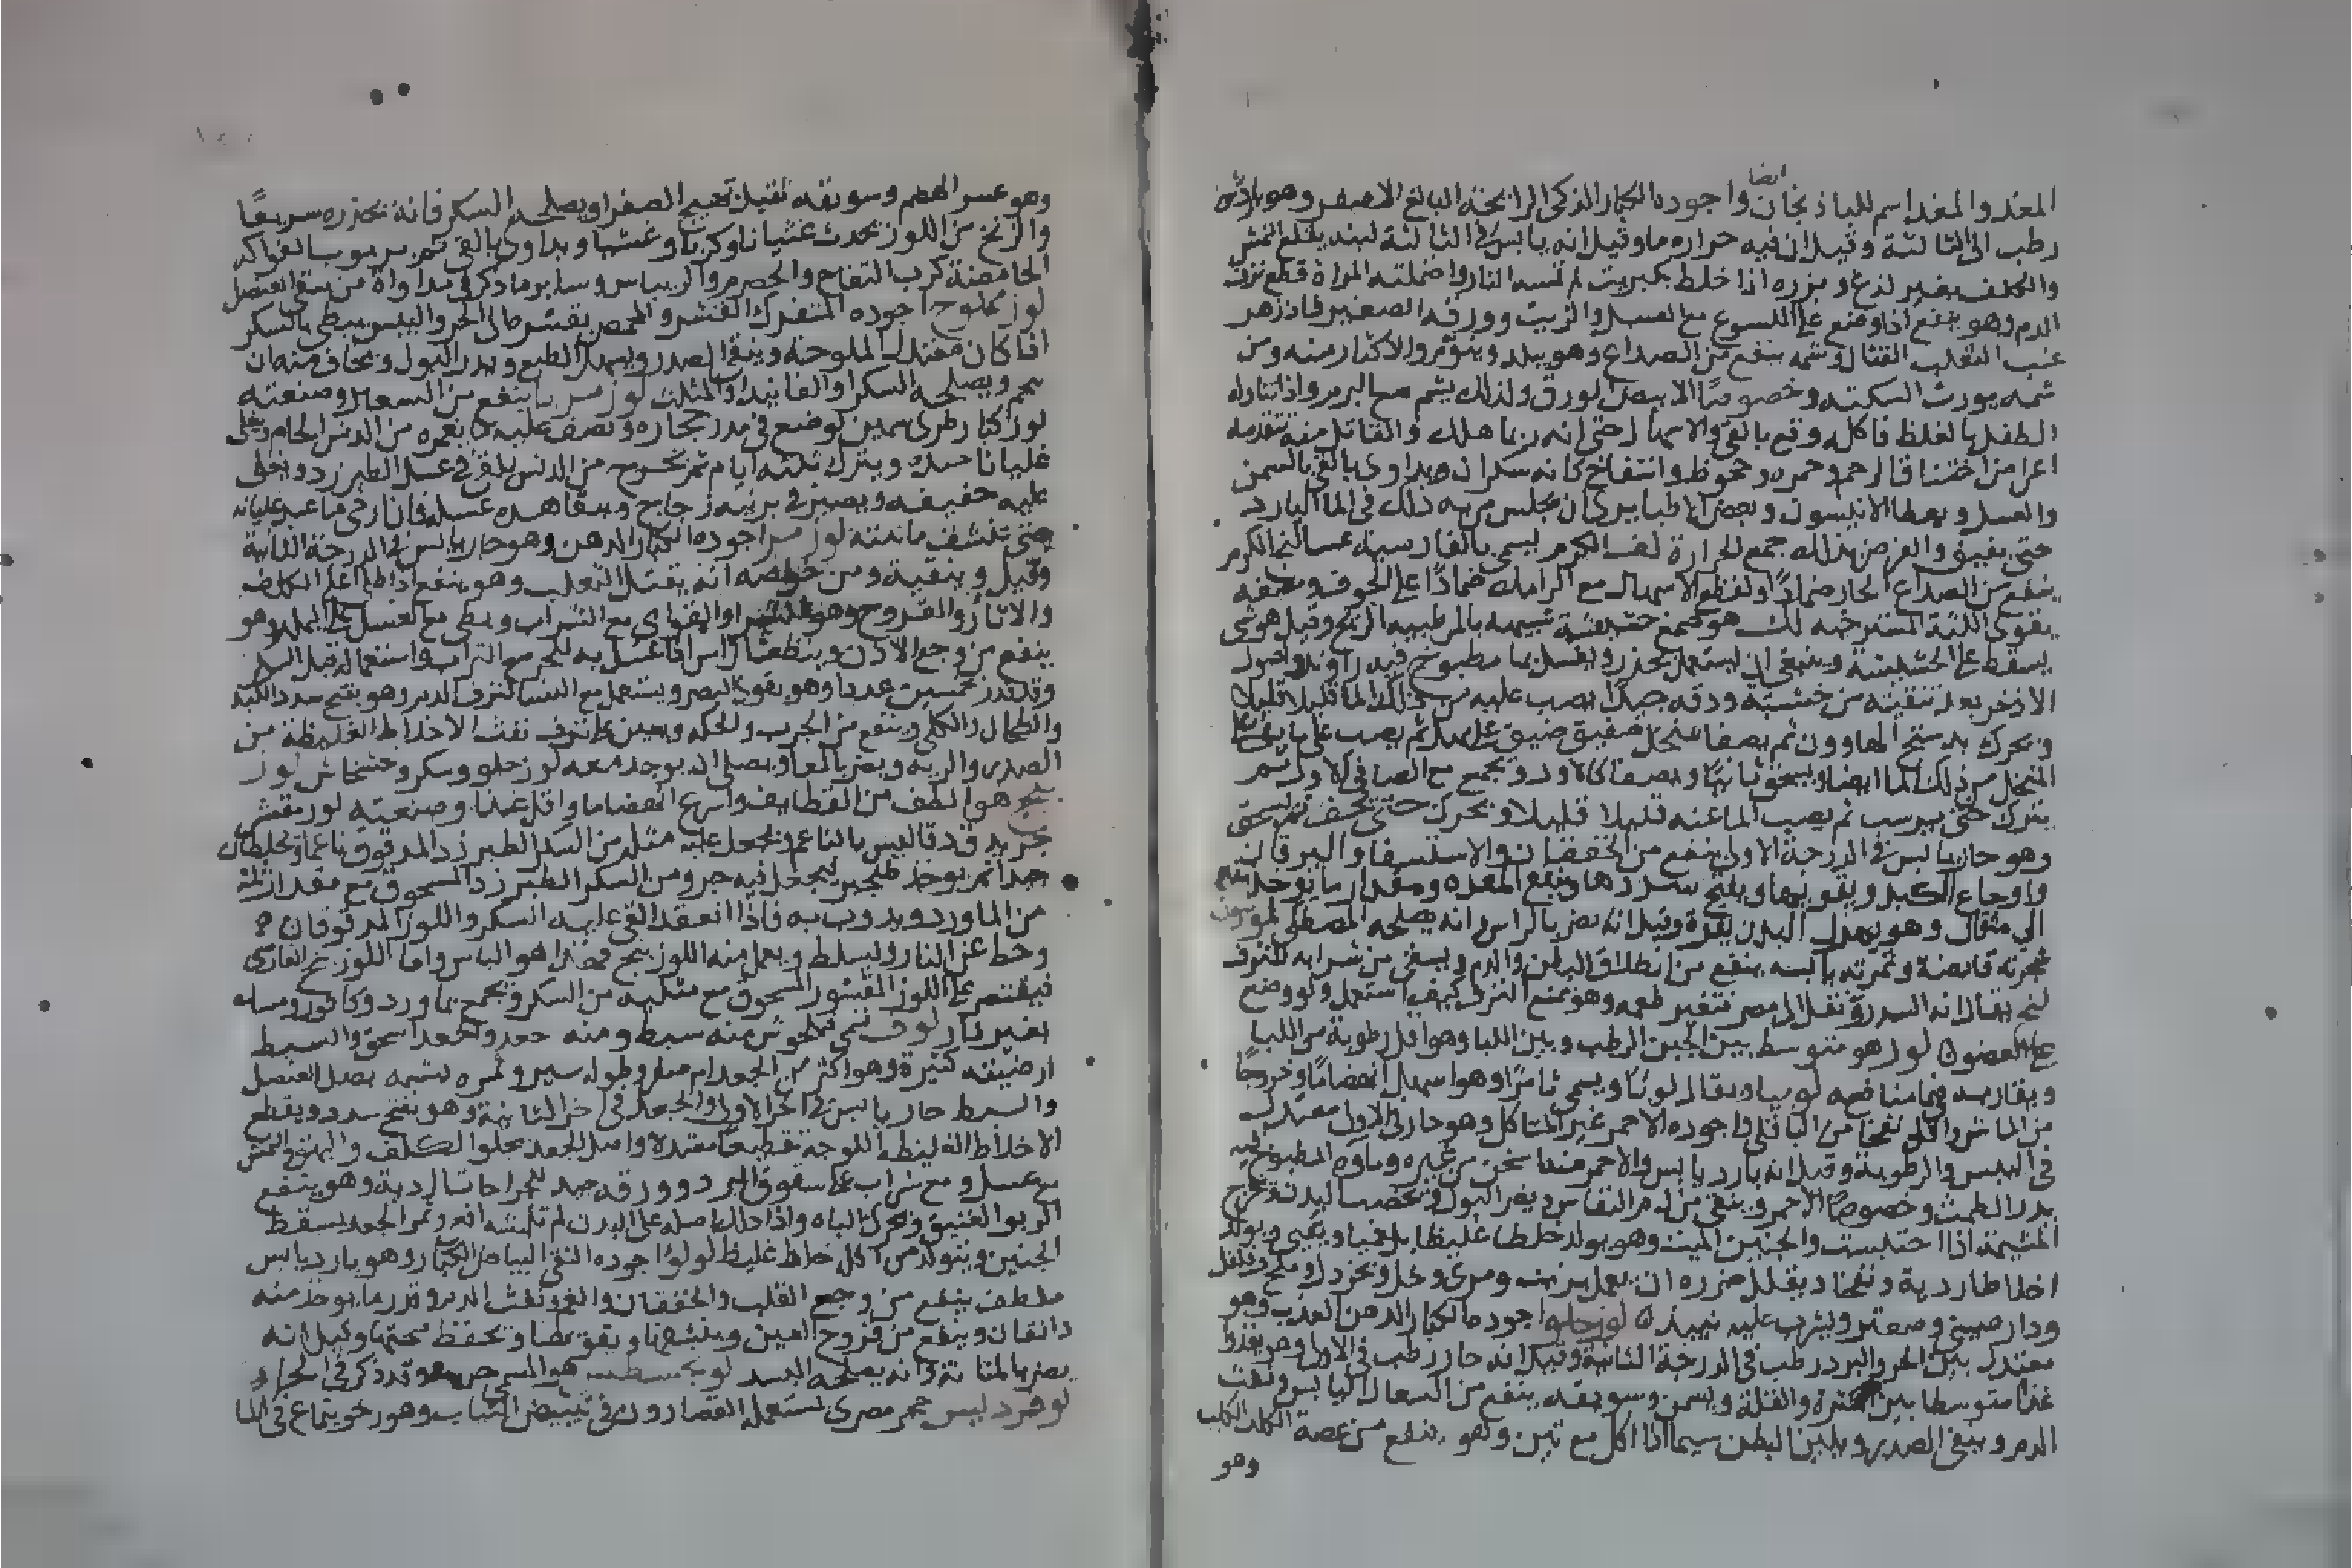 المغد والمغد اسم للباذنجان ايضا واجوده الكبار الذكي الرايحة البالغ الاصفر وهو بارد
رطب الى الثالثة وقيل ان فيه حراره ما وقيل انه يابس في الثالثة لبنه يقلع النمش
والكلف بغير لذع وبزره اذا خلط بكبريت لم تمسه النار واحتملته المراة قطع نزف
الدم وهو ينفع اذا وضع على اللسوع مع العسل والزيت وورقه الصغير
عنب الثعلب القتال وشمه ينفع من الصداع وهو يبلد وينوم والاكثار منه ومن
شمه يورث السكته وخصوصا الابيض الورق ولذلك يشم مع البرم واذا تناوله
الطفل بالغلط فاكله وقع بالقي والاسهال حتى انه ربما هلك والقاتل منه يتقدمه
اعراض اختناق الرحم وحمره وجحوظ وانتفاخ كانه سكران ويداوى بالقي بالسمن
والعسل ويعطا الانيسون وبعض الاطبا يرى ان يجلس من به ذلك في الما البارد
حتى يفيق والغرض بذلك جمع الحرارة لف الكرم يسمى بالفارسية عساليج الكرم
ينفع من الصداع الحار ضمادا ولقطع الاسهال مع الرامك ضمادا على الجوف
يقوى اللثة المسترخيه لك هو صمغ حشيشة شبيهه بالمر طيبه الريح وقيل هو شى
يسقط على الحشيشة وينبغى ان يستعمل بحذر ويغسل بما مطبوخ فيه راوند واصول
الاذخر بعد تنقيته من خشبه ودقه جيدا يصب عليه من ذلك الما قليلا قليلا
ويحرك بدستج الهاوون ثم يصفا بمنخل صفيق ضيق
المنخل من ذلك الما ايضا ويسحق ثانيا ويصفا كالاول ويجمع مع الصافي الاول ثم
يترك حتى يرسب ثم يصب الما عنه قليلا قليلا ويحرك حتى يجف ثم يسحق
وهو حار يابس في الدرجة الاولى ينفع من الخفقان والاستسقا واليرقان
واوجاع الكبد ويقويها ويفتح سددها وينفع المعده ومقدار ما يوخذ
الى مثقال وهو يهزل البدن بقوة وقيل انه يضر بالراس وانه يصلحه المصطكى
شجرته قابضة وثمرته يابسه ينفع من انطلاق البطن والدم ويسقى من شرابه للنزف
لبخ يقال انه السدر ونقل الى مصر فتغير طعمه وهو يمنع النزف كيف استعمل ولو وضع
على العضو لور هو متوسط بين الجبن الرطب وبين اللبا وهو اقل رطوبة من اللبا
ويقاربه في منافعه لوبيا ويقال لوبيا ويسمى ثامرا وهو اسهل انهضاما وخروجا
من الماش واقل نفخا من الباقلى واجوده الاحمر غير المتاكل وهو حار في الاولى معتدل
في اليبس والرطوبة وقيل انه بارد يابس والاحمر منه اسخن من غيره وماوه المطبوخ فيه
يدر الطمث وخصوصا الاحمر وينقى من دم النفاس ويدر البول ويخصب البدن ويخرج
المشيمة اذا احتبست والجنين الميت وهو يولد خلطا غليظا بلغميا ويغثى ويولد
اخلاطا ردية ونفخا ويقلل ضرره ان يعمل بزيت ومرى وخل وخردل وملح وفلفل
ودار صيني وصعتر ويشرب عليه نبيذ لوز حلو اجوده الكبار الدهن العذب وهو
معتدل بين الحر والبرد رطب في الدرجة الثانية وقيل انه حار رطب في الاولى وهو يغذو
غذا متوسطا بين الكثرة والقلة ويسمن وسويقه ينفع من السعال اليابس ونفث
الدم وينقى الصدر ويلين البطن سيما اذا اكل مع تين وهو ينفع من عضة الكلب الكلب
وهو
وهو عسر الهضم وسويقه ثقيل يهيج الصفرا ويصلحه السكر فانه يحدره سريعا
والزنخ من اللوز يحدث غثيانا وكربا وغشيا ويداوى بالقى ثم بربوب الفواكه
الحامضة كرب التفاح والحصرم والريباس وساير ما ذكر في مداواة من سقى العنصل
لوز مملوح اجوده المتفرك القشر والمحمص بقشره مال الى الحر واليبس يبطى بالسكر
اذا كان معتدل الملوحة وينقى الصدر ويسهل الطبع ويدر البول ويخاف منه ان
يحم ويصلحه السكر والفانيذ والمثلث لوز مربا ينفع من السعال وصنعته
لوز كبار طرى سمين يوضع في قدر حجاره ويصف عليه ما يغمره من الدبس الخام ويغلى
غليانا حسنا ويترك ثلثه ايام ثم يخرج من الدبس يلقى في عسل الطبرزد ويغلى
عليه خفيفه ويصير في برنيه زجاج ويتعاهده عسله فان ارخى ما عيد غليانه
حتى تنشف مائيته لوز مر اجوده الكبار الدهن وهو حار يابس في الدرجة الثانية
وقيل وينقيه ومن خواصه انه يقتل الثعلب وهو ينفع اذا طلى على الكلف
والاثار والقروح وهو والقوابى مع الشراب ويطلى مع العسل على النملة وهو
ينفع من وجع الاذن وينقى الراس اذا غسل به
وقد قدر بخمسين عددا وهو يقوى البصر ويستعمل مع النشا لنزف الدم وهو يفتح سدد الكبد
والطحال والكلى وينفع من الجرب والحكه ويعين على نفث الاخلاط الغليظة من
الصدر والريه ويضر بالمعا ويصلح ان يوخذ معه لوز حلو وسكر وخشخاش لوز
ينج هو الطف من القطايف واسرع انهضاما واقل غذا وصنعته لوز مقشر
يجرد يدق دقا ليس بالناعم ويجعل عليه مثله من السكر الطبرزد المدقوق ناعما ويخلطان
جيدا ثم يوخذ طنجير فيجعل فيه جزو من السكر الطبرزد المسحوق مع مقدار ثلثه
من الماورد ويذوب به فاذا انعقد القى عليه السكر واللوز المدقوقان
وحط عن النار وليسلط ويعمل منه اللوزينج فهذا هو اليابس واما اللوزينج الفارسى
فيقتصر على اللوز المقشور المسحوق مع مثليه من السكر ويجمع بماورد وكافور ومسك
بغير نار لوف شى منه سبط ومنه جعد والجعد اسخن والسبط
ارضيته كثيرة وهو اكثر من الجعد وثمره يشبه بصل العنصل
والسبط حار يابس في اخر الاولى والجعد في اخر الثانية وهو يفتح سدد ويقطع
الاخلاط الغليظه اللزجة تقطيعا معتدلا واصل الجعد يجلو الكلف والبهق والنمش
مع عسل ومع شراب على شقوق البرد وورقه جيد للجراحات الردية وهو ينفع
الربو العتيق ويحرك الباه واذا دلك اصله على البدن لم تنهشه افعى وثمر الجعد يسقط
الجنين ويتولد من اكله خلط غليظ لولو اجوده النقى البياض الكبار وهو بارد يابس
ملطف ينفع من وجع القلب والخفقان والغم ونفث الدم وقدر ما يوخذ منه
دانقان وينفع من قروح العين وينشفها ويقويها ويحفظ صحتها وقيل انه
يضر بالمثانة وانه يصلحه البسد هو المسمى وقد ذكر في
لوفردليس حجر مصرى تستعمله القصارون في تبييض الثياب وهو رخو ينماع في الما